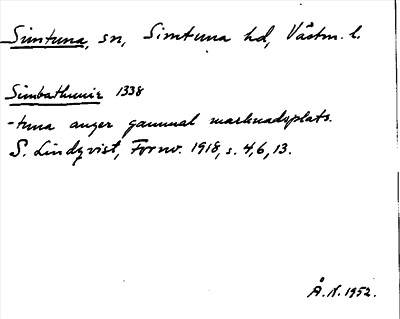 Simtuna, sn, Simtuna hd, Västm. l.
Simbathunir 1338
-tuna anger gammal marknadsplats.
S. Lindqvist, Fornv. 1918, s. 4, 6, 13.
Å. N. 1952.